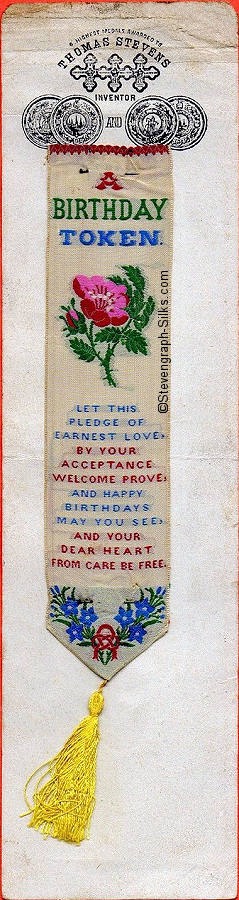 8 HIGHEST MEDALS AWARDED TO
THOMAS STEVENS
INVENTOR
AND
A
BIRTHDAY
TOKEN.
©Stevengraph-Silks.com
LET THIS
PLEDGE OF
EARNEST LOVE,
BY YOUR
ACCEPTANCE
WELCOME PROVE;
AND HAPPY
BIRTHDAYS
MAY YOU SEE,
AND YOUR
DEAR HEART
FROM CARE BE FREE.